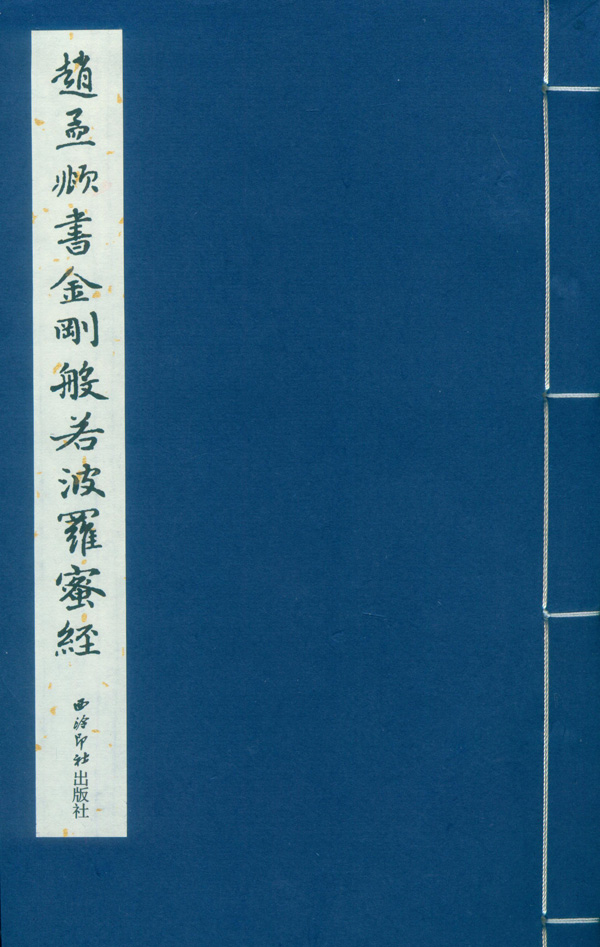 趙孟頫書金剛般若波羅蜜經
西泠印社出版社